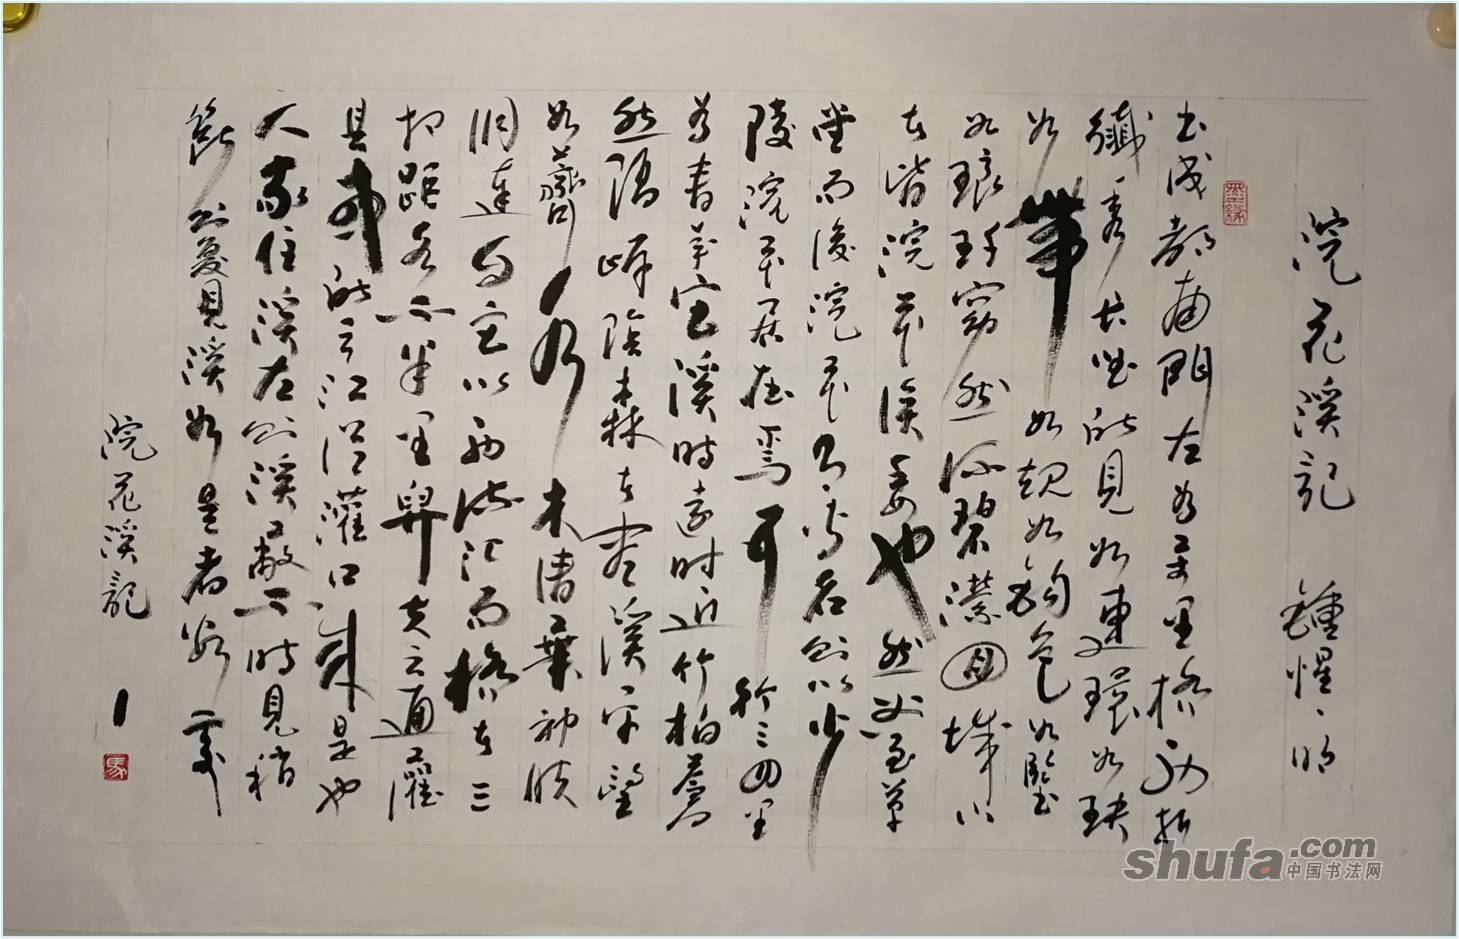 浣花溪記 鍾惺、明
墨緣
出成都南門左為萬里橋西折
纖秀長曲所見如連環如玦
如帶如規如鉤色如鑒
如琅玕窈然深碧瀠回城下
者皆浣花溪委也然必至草
堂而後浣花有專名則以少
陵浣花居在焉耳行三四里
為青羊宮溪時遠時近竹柏蒼
然隔岸陰森者盡溪平望
如薺水木清華神膚
洞達自宮以西流汇而橋者三
相距各不半里舁夫云通灌
縣或所云江從灌口來是也
人家住溪左則溪蔽不時見稍
斷則復見溪如是者數處
浣花溪記
馬
shufa.com
中国书法网